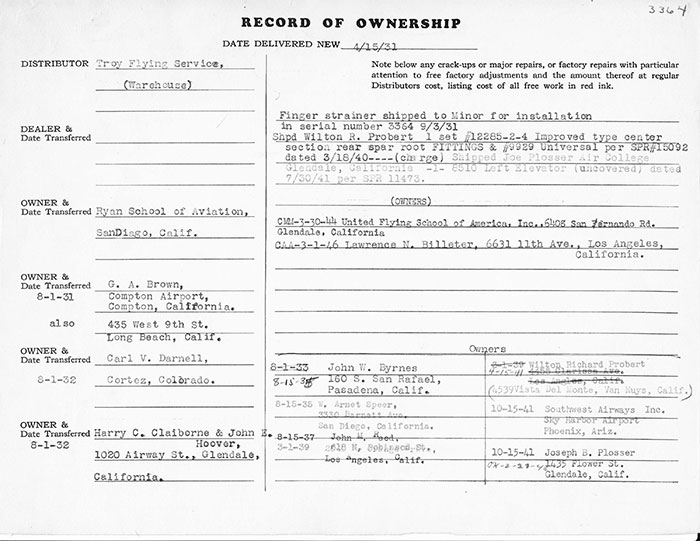 3364
RECORD OF OWNERSHIP
DATE DELIVERED NEW 4/15/31
DISTRIBUTOR Troy Flying Service,
(Warehouse)
Note below any crack-ups or major repairs, or factory repairs with particular
attention to free factory adjustments and the amount thereof at regular
Distributors cost, listing cost of all free work in red ink.
DEALER &
Date Transferred
Finger strainer shipped to Minor for installation
in serial number 3364 9/3/31
Shpd Wilton R. Probert 1 set #12285-2-4 Improved type center
section rear spar root FITTINGS & #9929 Universal per SPR#15092
dated 3/18/40----(charge) Shipped Joe Plosser Air College
Glendale, California -1- 8510 Left Elevator (uncovered) dated
7/30/41 per SPR 11473.
OWNER &
Date Transferred Ryan School of Aviation,
SanDiago, Calif.
(OWNERS)
CMM-3-30-44 United Flying School of America, Inc., 5408 San Fernando Rd.
Glendale, California
CAA-3-1-46 Lawrence N. Billeter, 6631 11th Ave., Los Angeles,
California.
OWNER &
Date Transferred G. A. Brown,
8-1-31 Compton Airport,
Compton, California.
also 435 West 9th St.
Long Beach, Calif.
OWNER &
Date Transferred Carl V. Darnell,
8-1-32 Cortez, Colorado.
OWNER &
Date Transferred Harry C. Claiborne & John E.
8-1-32 Hoover,
1020 Airway St., Glendale,
California.
Owners
8-1-33 John W. Byrnes
8-15-35 160 S. San Rafael,
Pasadena, Calif.
8-15-35 W. Arnet Speer,
3330 Avе.
San Diego, California.
8-15-37 John H. Hood,
3-1-39 2618 N. Robinson St.,
Los Angeles, Calif.
8-1-39 Wilton Richard Probert
4-15-41 Ave.
Los Angles, Calif.
(4539Vista Del Monte, Van Nuys, Calif.)
10-15-41 Southwest Airways Inc.
Sky Harbor Airport
Phoenix, Ariz.
10-15-41 Joseph B. Plosser
1435 Flower St.
Glendale, Calif.